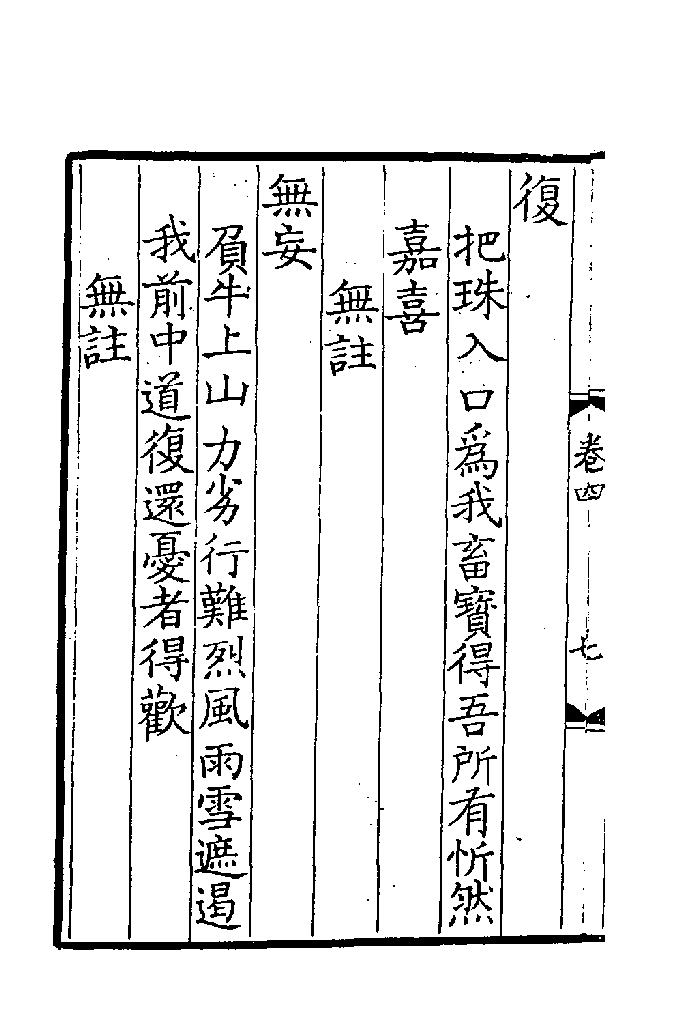 卷四
七
復
把珠入口爲我畜寶得吾所有忻然
嘉喜
無註
無妄
負牛上山力劣行難烈風雨雪遮遏
我前中道復還憂者得歡
無註